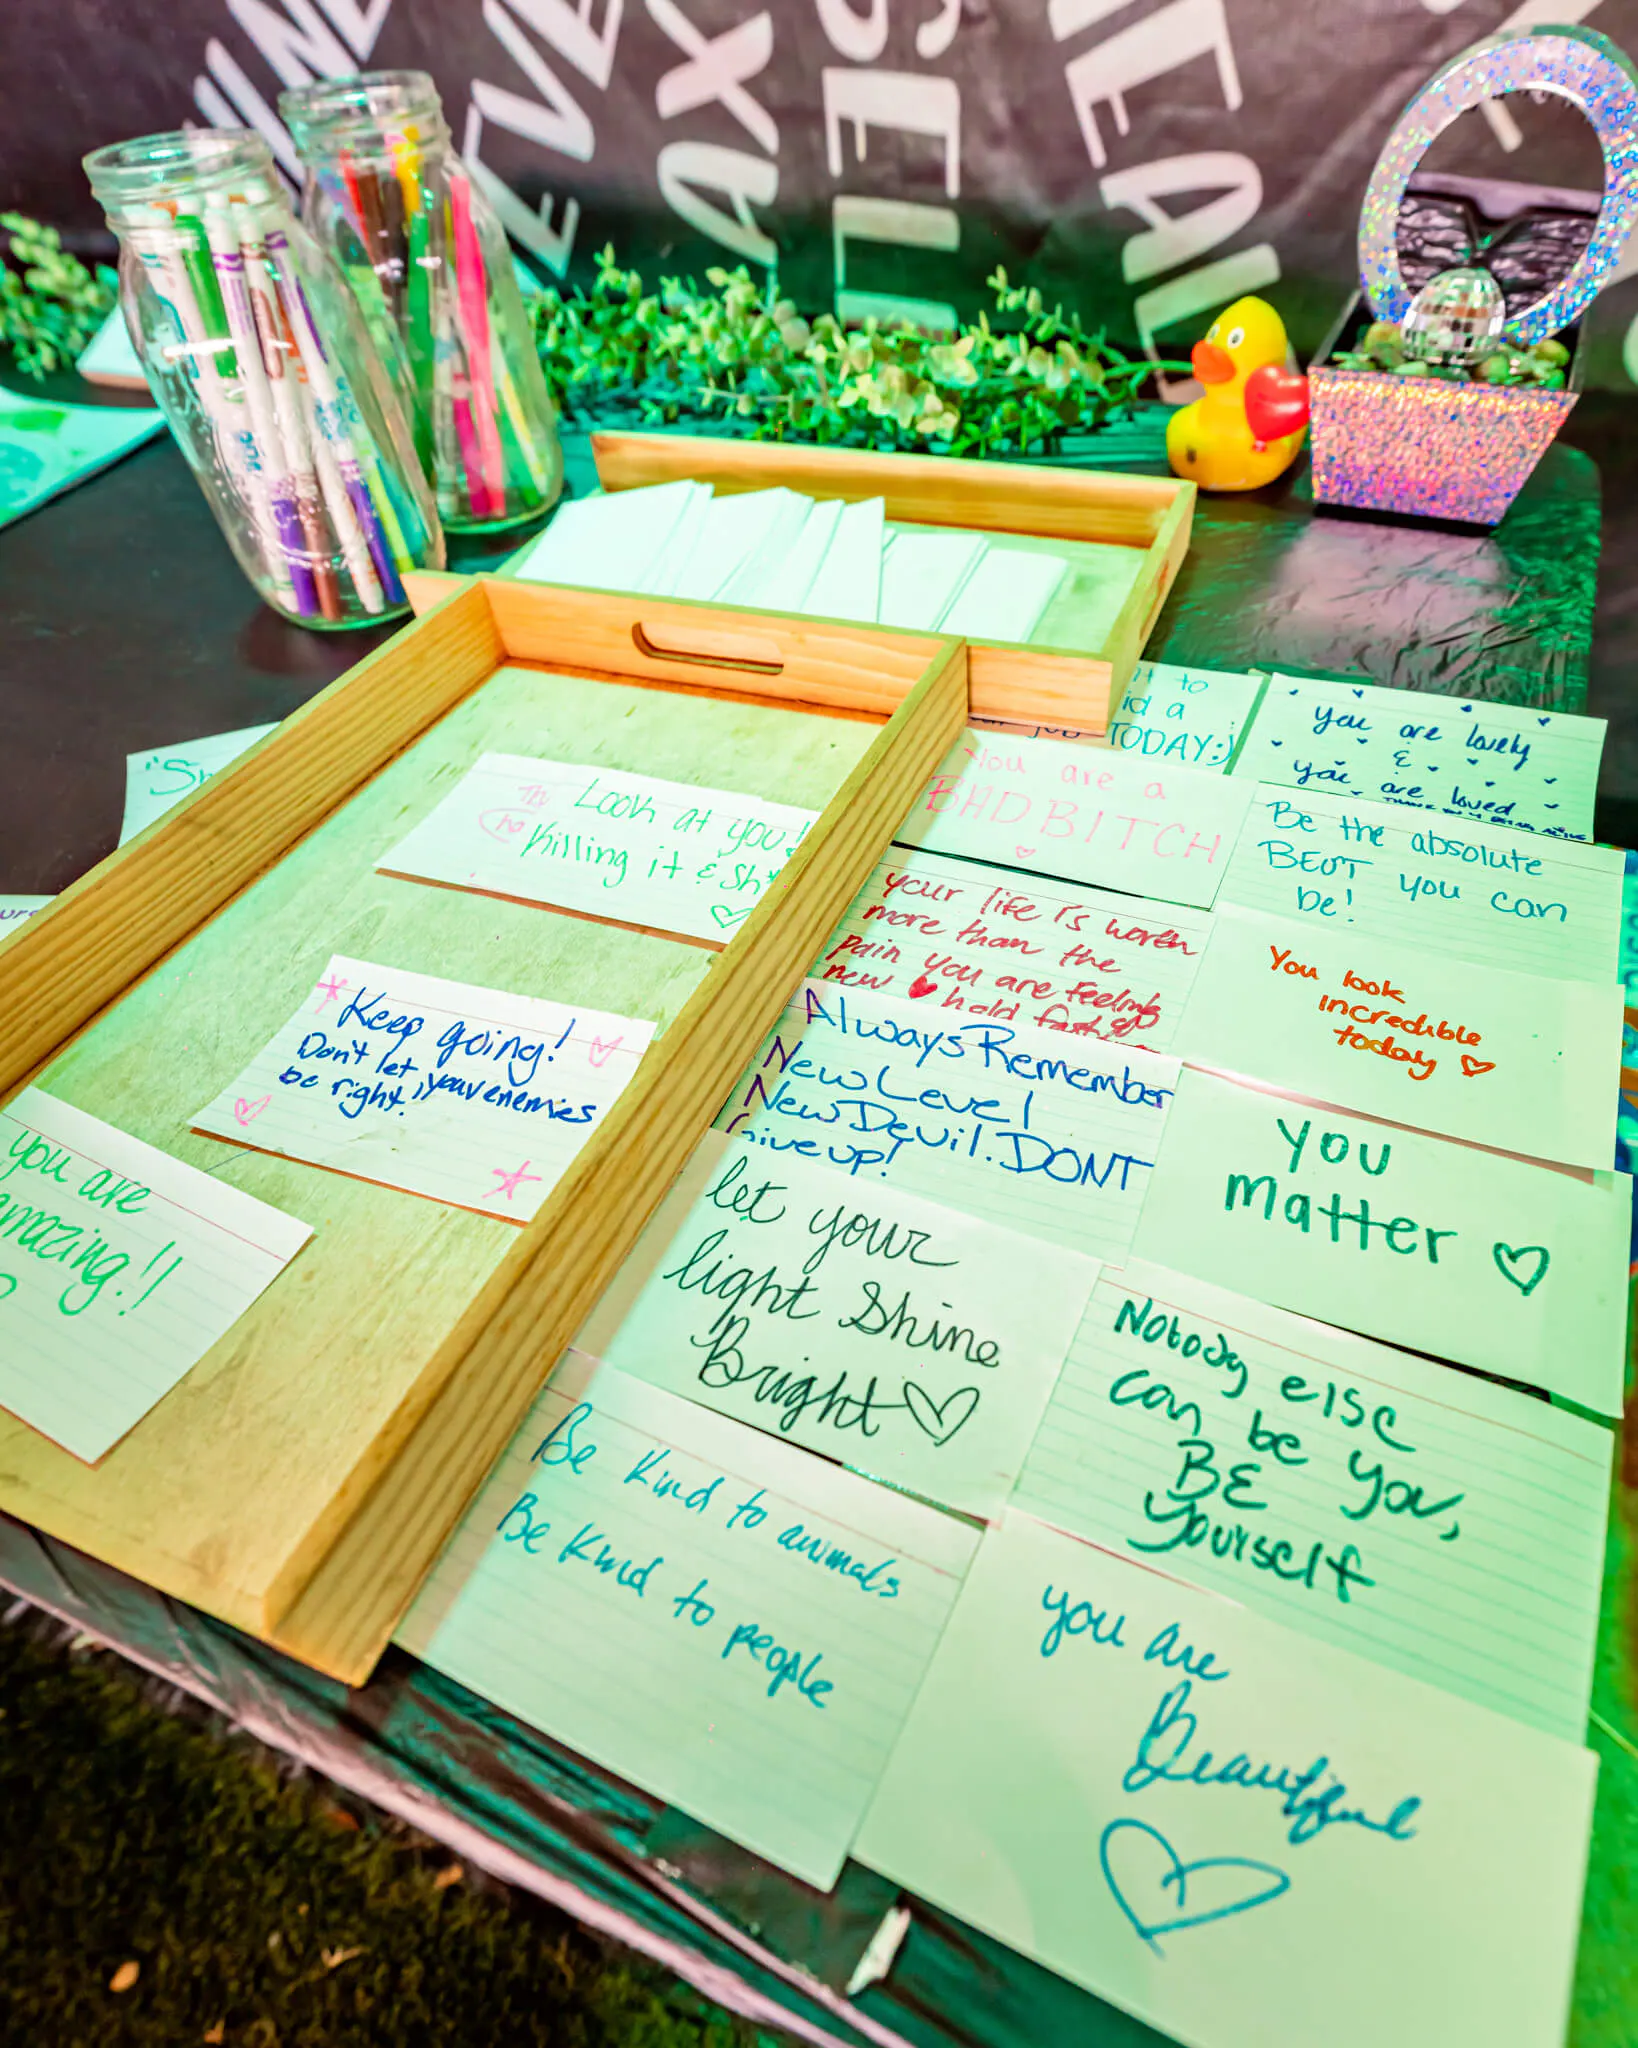 Look at you!
Killing it & Sh*
Keep going!
Don't let your enemies
be right!
you are
amazing!!
"Sn
it to
id a
job TODAY:)
You are a
BAD BITCH
your life is worth
more than the
pain you are feeling
new hold fast
Always Remember
New Level
New Devil. DONT
Give up!
let your
light Shine
Bright
Be Kind to animals
Be Kind to people
you are lovely
&
you are loved
THANK YOU 4 BEING ALIVE
Be the absolute
BEUT you can
be!
You look
incredible
today
you
matter
Nobody else
can be you,
BE
yourself
you are
Beautiful